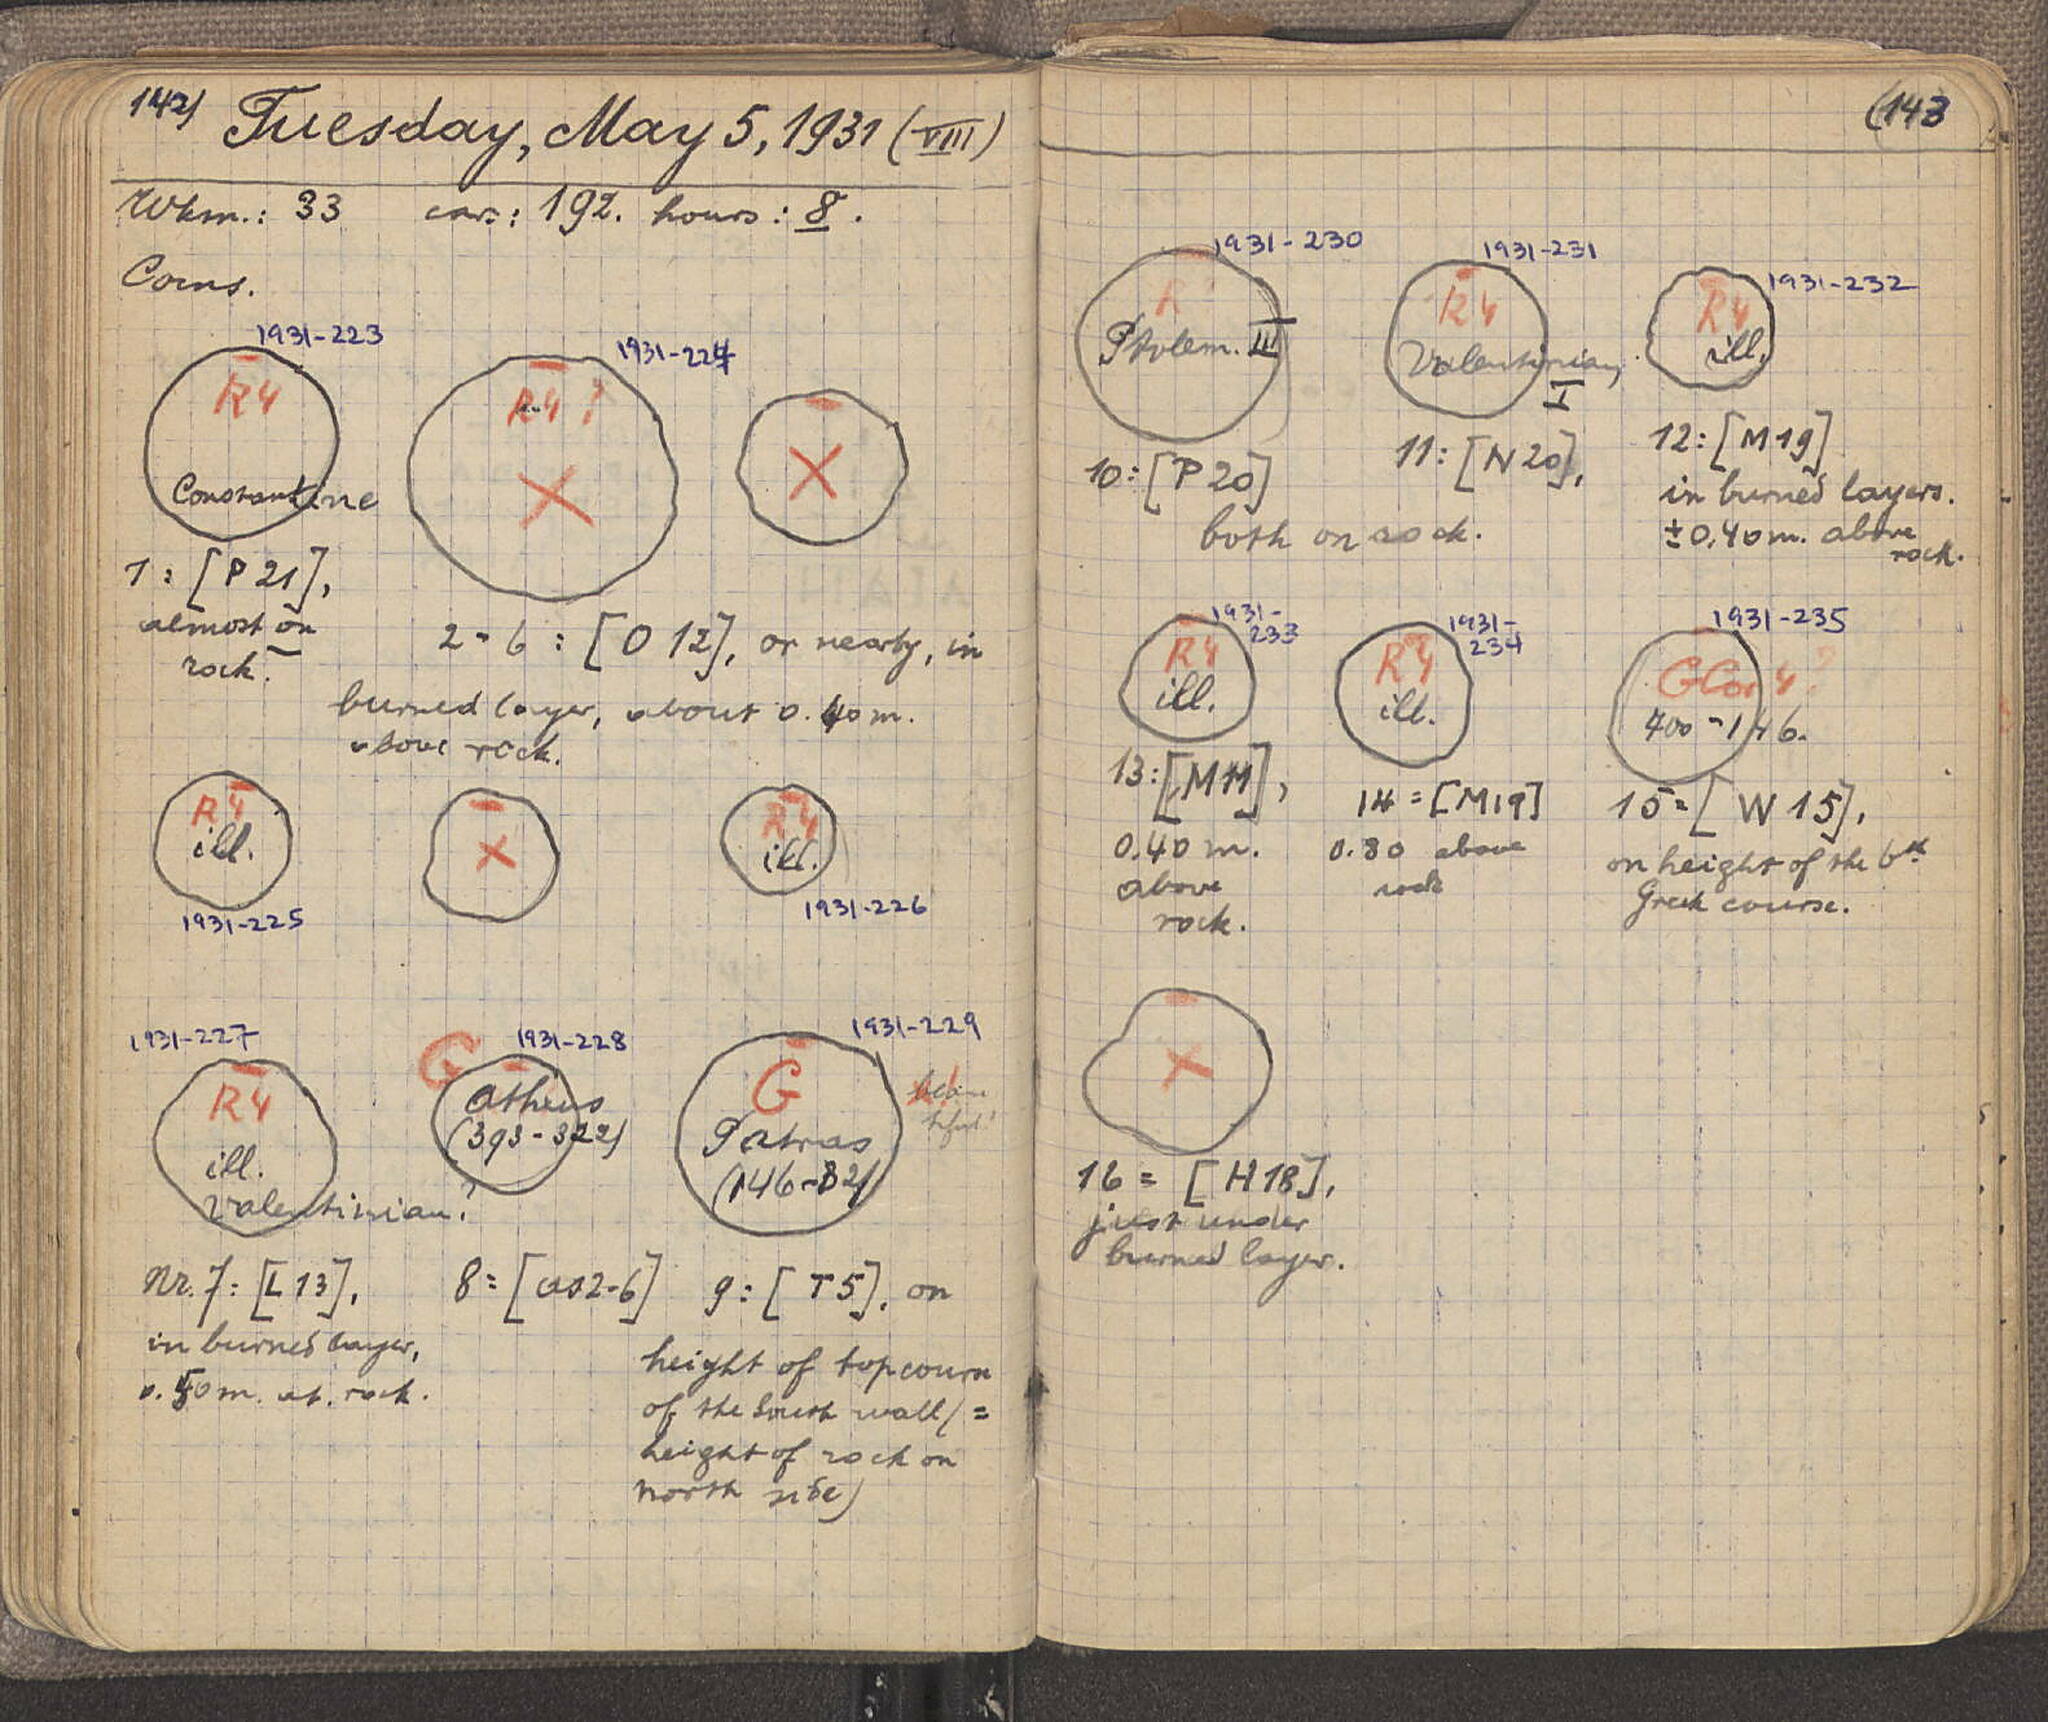 142)
Tuesday, May 5, 1931 (VIII)
Wkm.: 33 cars: 192. hours: 8.
Coins.
1931-223
R4
Constantine
1931-224
R4?
X
X
1: [P 21],
almost on
rock.
2-6: [O 12], or nearby, in
burned layer, about 0.40 m.
above rock.
R4
ill.
1931-225
X
R4
ill.
1931-226
1931-227
R4
ill.
Valentinian?
G
1931-228
Athens
(393-322)
1931-229
G
Patras
(146-32)
Nr. 7: [L 13],
in burned layer,
0.50 m. ab. rock.
8= [as2-6]
9: [T 5], on
height of top course
of the South wall (=
height of rock on
north side)
(143
1931-230
R
Ptolem. III
1931-231
R4
Valentinian
I
1931-232
R4
ill.
10: [P 20]
11: [N 20],
both on rock.
12: [M 19]
in burned layers.
±0.40 m. above
rock.
1931-
233
R4
ill.
1931-
234
R4
ill.
1931-235
GCor 4?
400-146.
13: [M11],
0.40 m.
above
rock.
14= [M19]
0.80 above
rock
15= [W 15],
on height of the 6th
Greek course.
X
16= [H18],
just under
burned layer.